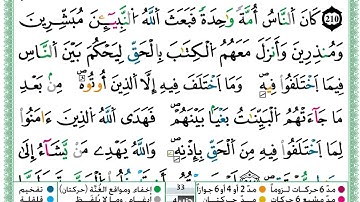 كَانَ ٱلنَّاسُ أُمَّةً وَٰحِدَةً فَبَعَثَ ٱللَّهُ ٱلنَّبِيِّـۧنَ مُبَشِّرِينَ
وَمُنذِرِينَ وَأَنزَلَ مَعَهُمُ ٱلْكِتَٰبَ بِٱلْحَقِّ لِيَحْكُمَ بَيْنَ ٱلنَّاسِ
فِيمَا ٱخْتَلَفُوا۟ فِيهِ ۚ وَمَا ٱخْتَلَفَ فِيهِ إِلَّا ٱلَّذِينَ أُوتُوهُ مِنۢ بَعْدِ
مَا جَآءَتْهُمُ ٱلْبَيِّنَٰتُ بَغْيًۢا بَيْنَهُمْ ۖ فَهَدَى ٱللَّهُ ٱلَّذِينَ ءَامَنُوا۟
لِمَا ٱخْتَلَفُوا۟ فِيهِ مِنَ ٱلْحَقِّ بِإِذْنِهِۦ ۗ وَٱللَّهُ يَهْدِى مَن يَشَآءُ إِلَىٰ
مدّ 6 حركات لزوماً مدّ 2 أو 4 أو 6 جوازاً 33 إخفاء ومواقع الغُنّة (حركتان) تفخيم
مدّ مشبع 6 حركات مدّ حركتان إدغام، وما لا يُلفظ قلقلة